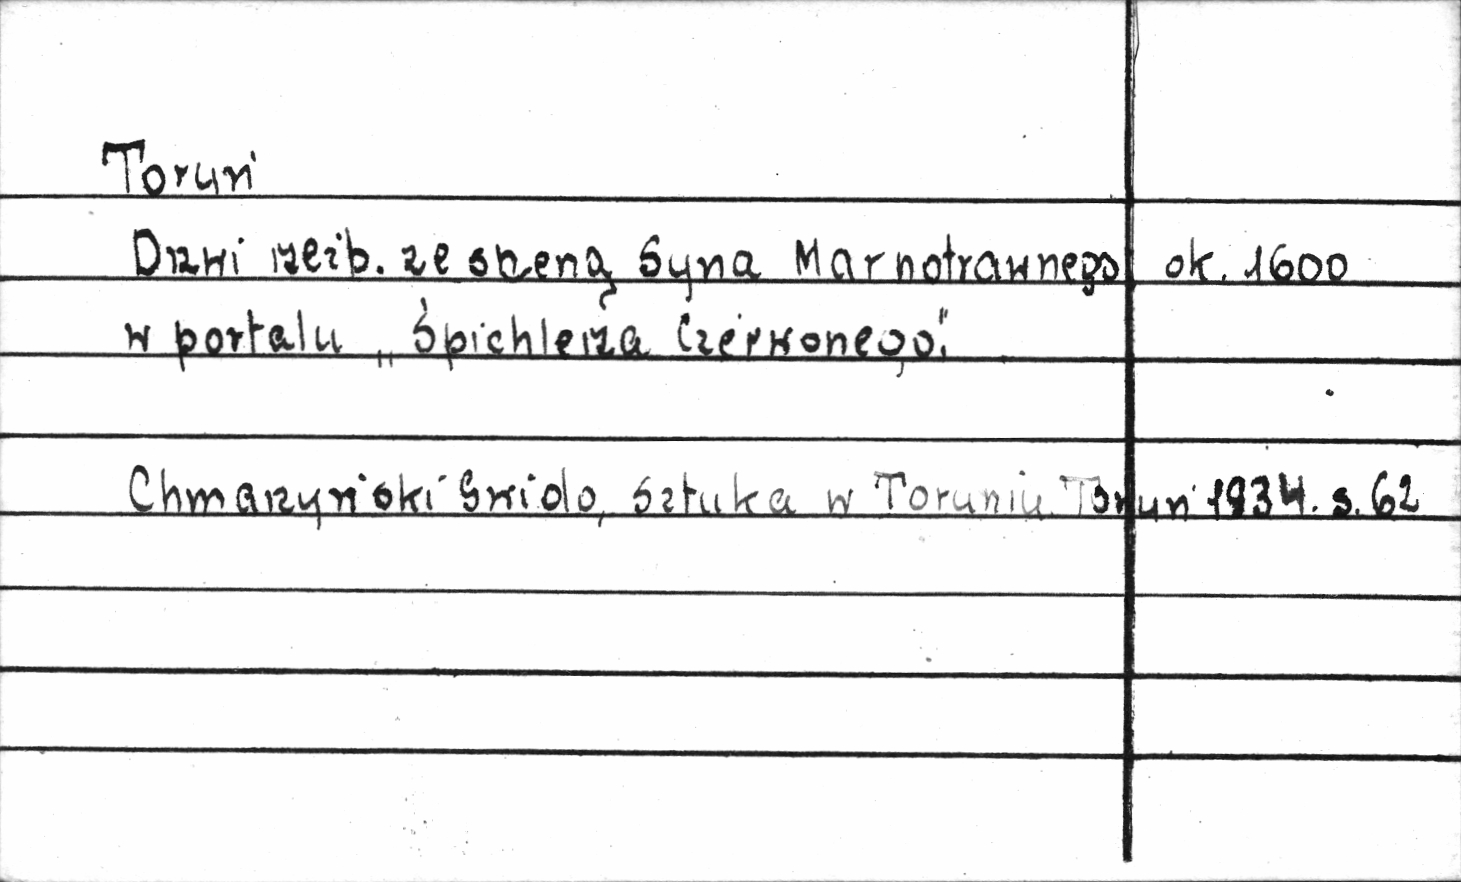 Toruń
Drzwi rzeźb. ze sceną Syna Marnotrawnego ok. 1600
w portalu „Śpichlerza Czerwonego".
Chmarzyński Gwido, Sztuka w Toruniu. Toruń 1934. s. 62